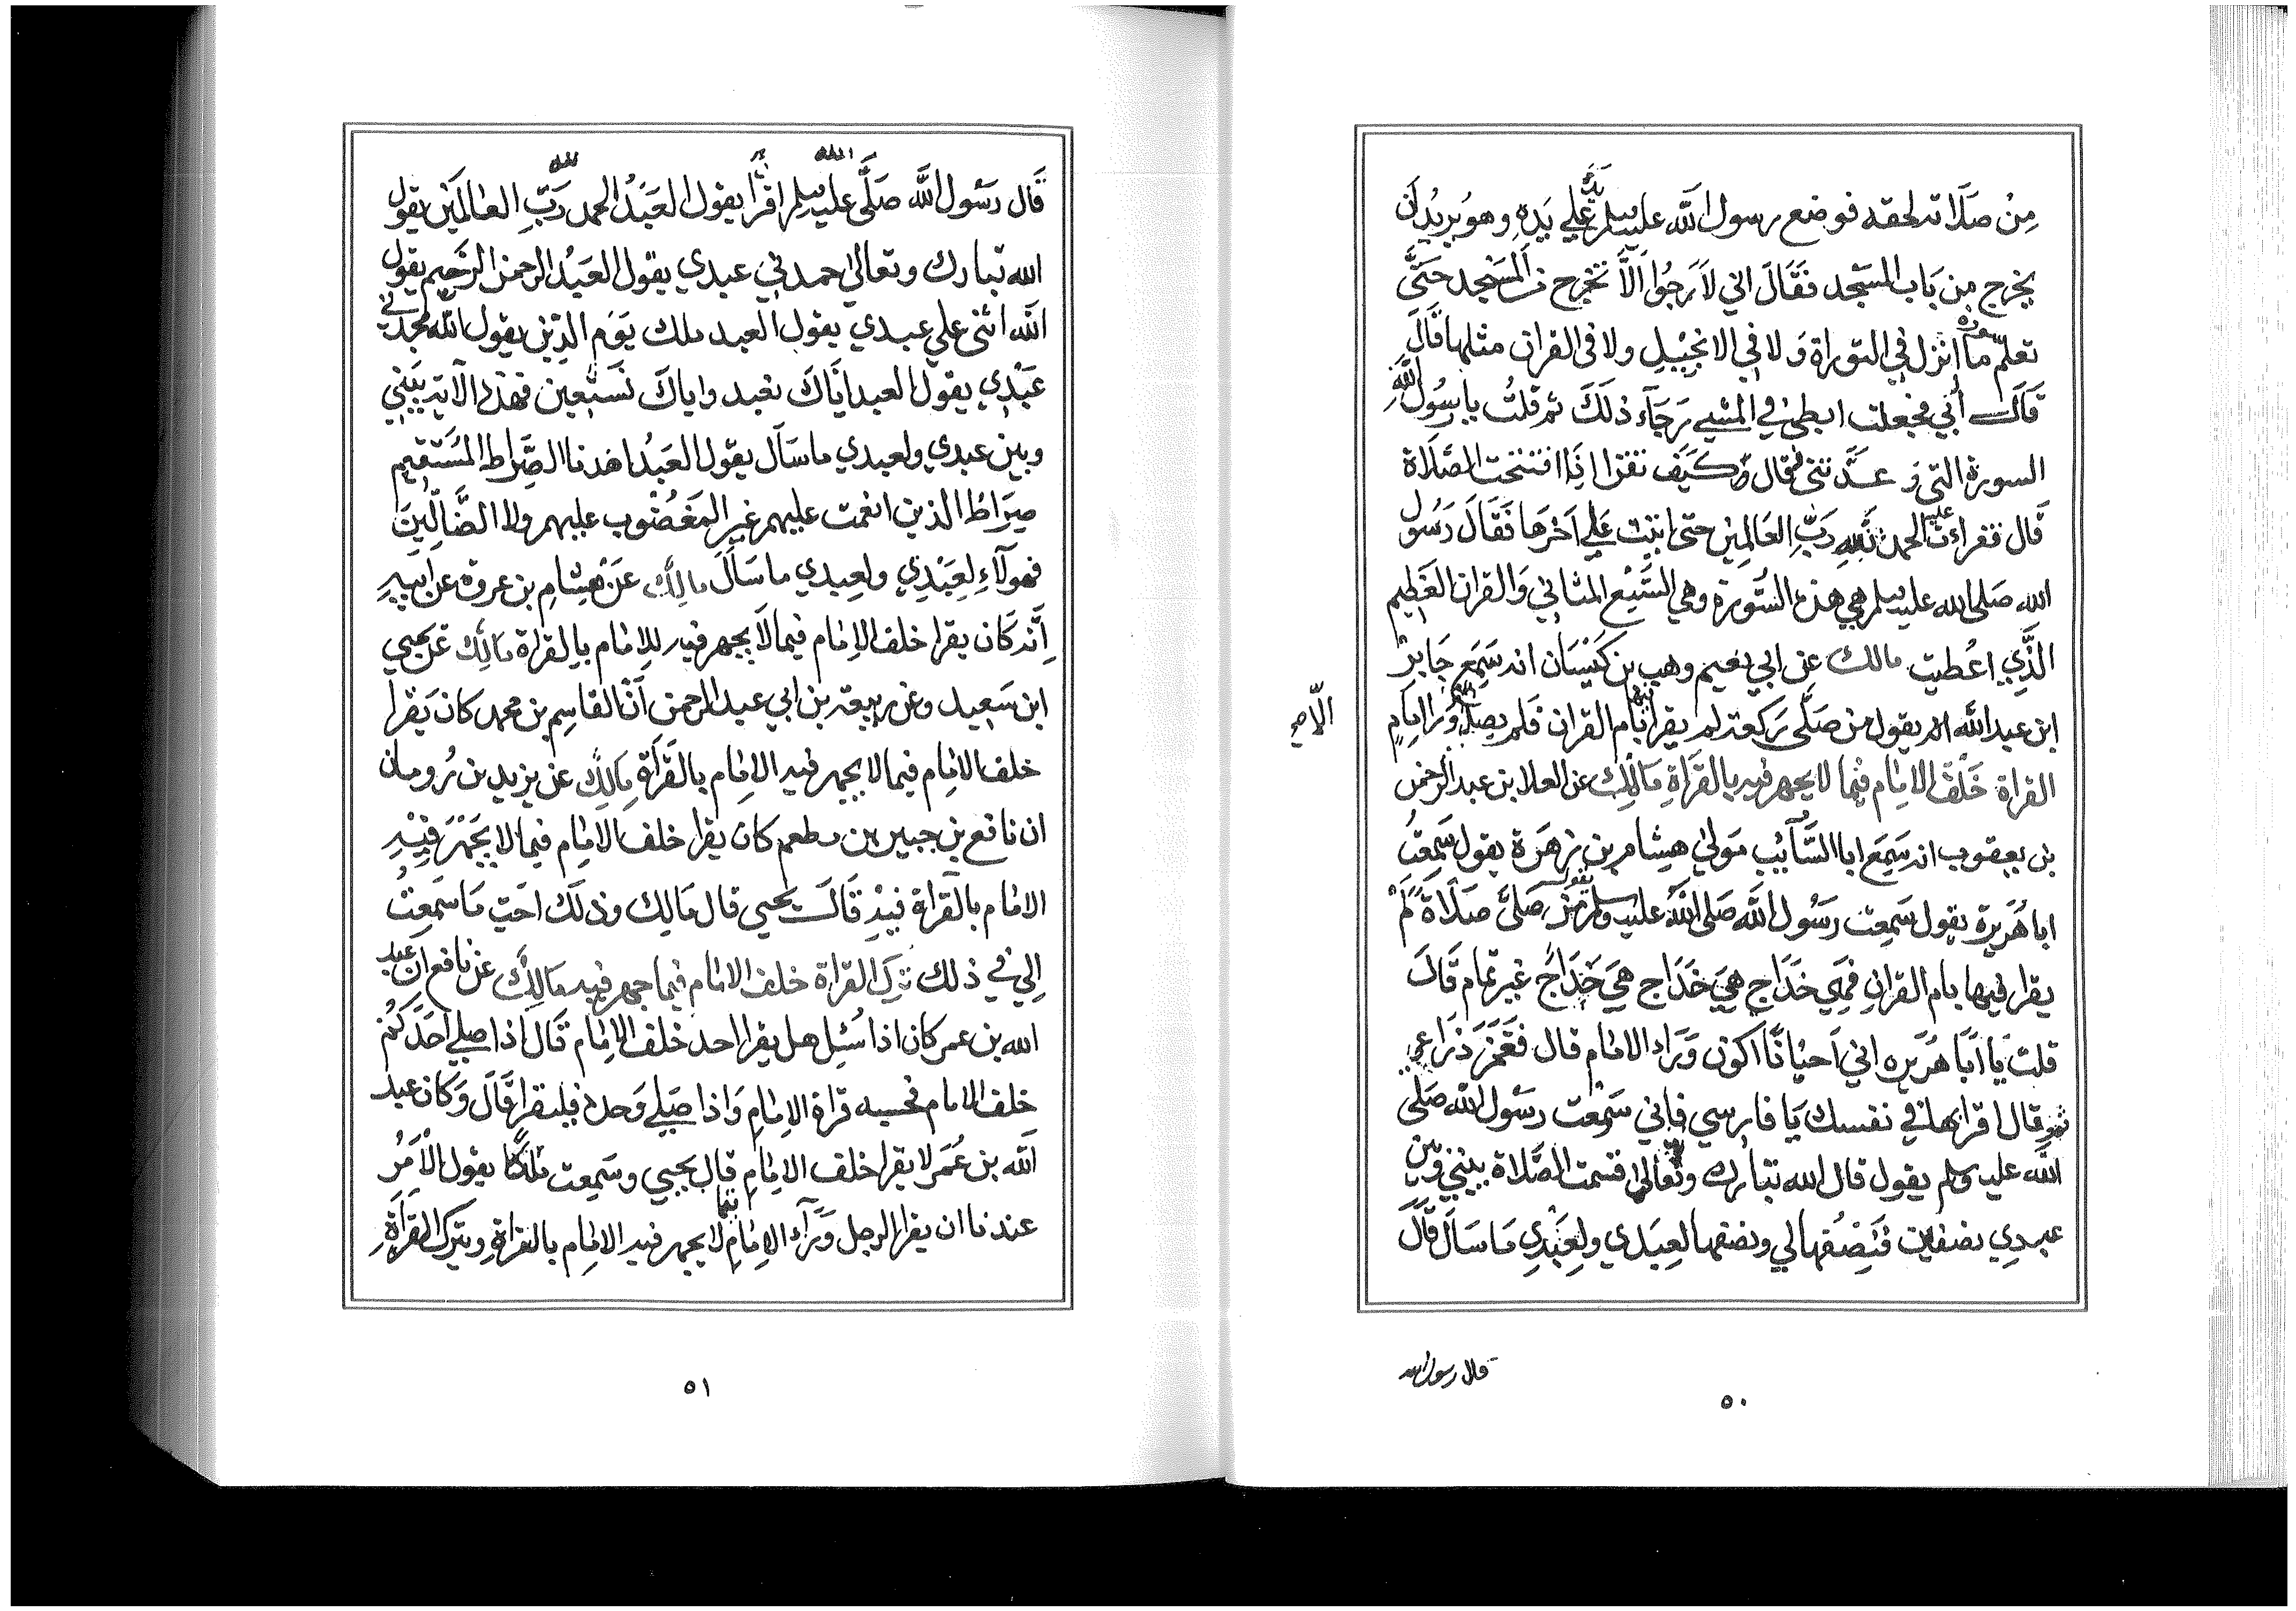 مِنْ صَلَاته لحقه فوضع رسول الله عليه وسلم يَدَهُ علي يَدِهِ وهو يريد أن
يخرج من بَاب المسجد فَقَالَ اني لاَرجُوا ألاَّ تخرج من المسْجد حَتَّي
تعلم سورة ما انزل في التوراة وَلا في الانجيل ولا في القران مثلها قَالَ
قَالَ أُبي فجعلت ابطئ في المشي رَجَآءَ ذلك ثم قلتُ يا رسُول الله
السورة التي وَعَدتني قال كَيْف تقرا اذا افتتحت الصَّلاة
قَال فقراءت عليه الحمد لله رَبِّ العَالمين حتى اتيت عَلي اخرهَا فَقَالَ رَسُول
الله صَلى الله عليه وسلم هي هذه السُّورَة وهي السَّبْع المثاني وَالقران العَظِيم
الذَّي اعْطيت مالك عن ابي نعيم وهب بن كَيْسَان انه سَمِعَ جَابر
ابن عبد الله يقول من صَلَّى رَكعة لم يقرا فيها بام القران فَلم يصل الا وَرا الامَامِ
الَّا صح
القراة خَلْفَ الامَام فيما لا يجهر فيه بالقَرَاةِ مَالِك عن العلا بن عبد الرحمن
بن يعقوب انه سَمِعَ ابا السَّآئِب مَولي هِشام بن زهرَة يقول سَمِعْتُ
ابا هُرَيرة يقول سَمِعت رَسُول الله صَلى اللَّه عليه وسلم يقول من صَلىَّ صَلاة لَمْ
يقرا فيها بام القران فهْي خَدَاج هيَ خَدَاج هيَ خَدَاجٌ غير تمام قَالَ
قلت يَا أبَا هُرَيره اني اَحيَانًا اكون وَرَاء الامَام قال فَغَمَزَ ذرَاعي
ثم قال اقرا بها في نفسك يَا فارسي فاني سَمِعْت رسُول الله صَلى
الله عليه وسلم يقول قال الله تبارك وتعالى قسمت الصَّلاة بيني وَبين
عبدي نصفين فَنِصْفها لي ونصفها لعبدي ولعَبْدِي مَا سَالَ قَالَ
قال رسول الله
٥٠
قَال رَسُول اللَّه صَلَّى الله عليه وسلم اقرأ يقول العَبْدُ الحمد لله رَبِّ العَالَمَيْن يقول
الله تبارك وتعالي حمدني عبدي يقول العَبْدُ الرحمن الرَّحيم يقول
اللَّه اثنى علي عبدي يقول العبد ملك يَوم الدِّين يقول الله مجدني
عَبْدِي يقول العبد ايَّاكَ نعبد واياكَ نَسْتعين فهذه الآية بَيْني
وبين عبدي ولعبدي ما سَآل يقول العَبْدُ اهدنا الصِّراط المُسْتَقيم
صِرَاطَ الذين انعمت عليهم غير المَغضُوب عليهم ولا الضَّالِّينَ
فهولآءِ لعَبْدِي ولعبدي ما سَأَلَ مالك عَنْ هِشام بن عروة عن ابيه
اِنَّه كَان يقرا خلف الامَام فيما لاَ يجهر فيه الامَام بالقراة مَالِك عَن يحيي
ابن سَعيد وعَن ربيعة بن ابي عبد الرحمن اَنّ القاسِم بن محمد كان يَقرا
خلف الامَام فيما لا يجهر فيه الامَام بالقَرَأةِ مَالِك عَن يزيد بن رُومان
ان نافع بن جبير بن مطعم كان يقرا خلف الامَام فيما لا يَجْهَر فِيْهِ
الامَام بالقَراة فيه قَالَ يحيي قال مَالِك وذلك احَب مَا سَمعتُ
الي في ذلك تركَ القراة خلف الامَام فيما جهر فيه مَالِك عَن نافع ان عبد
الله بن عمر كان اذا سُئِل هل يقرا احد خلف الامَام قَالَ اذا صلي أَحَدَكُم
خلف الامام فحسبه قراة الامَامِ وَاذا صَلي وَحده فليقرا قَالَ وَكان عبد
الله بن عُمَر لا يقرا خلف الامَامِ قال يحيي وسَمِعت مَالكًا يقول الْامْرُ
عندنا ان يقرا الرجل وَرَآءِ الامَامِ فيما لا يجهر فيه الامَام بالقراةِ ويترك القَرَأَةِ
٥١